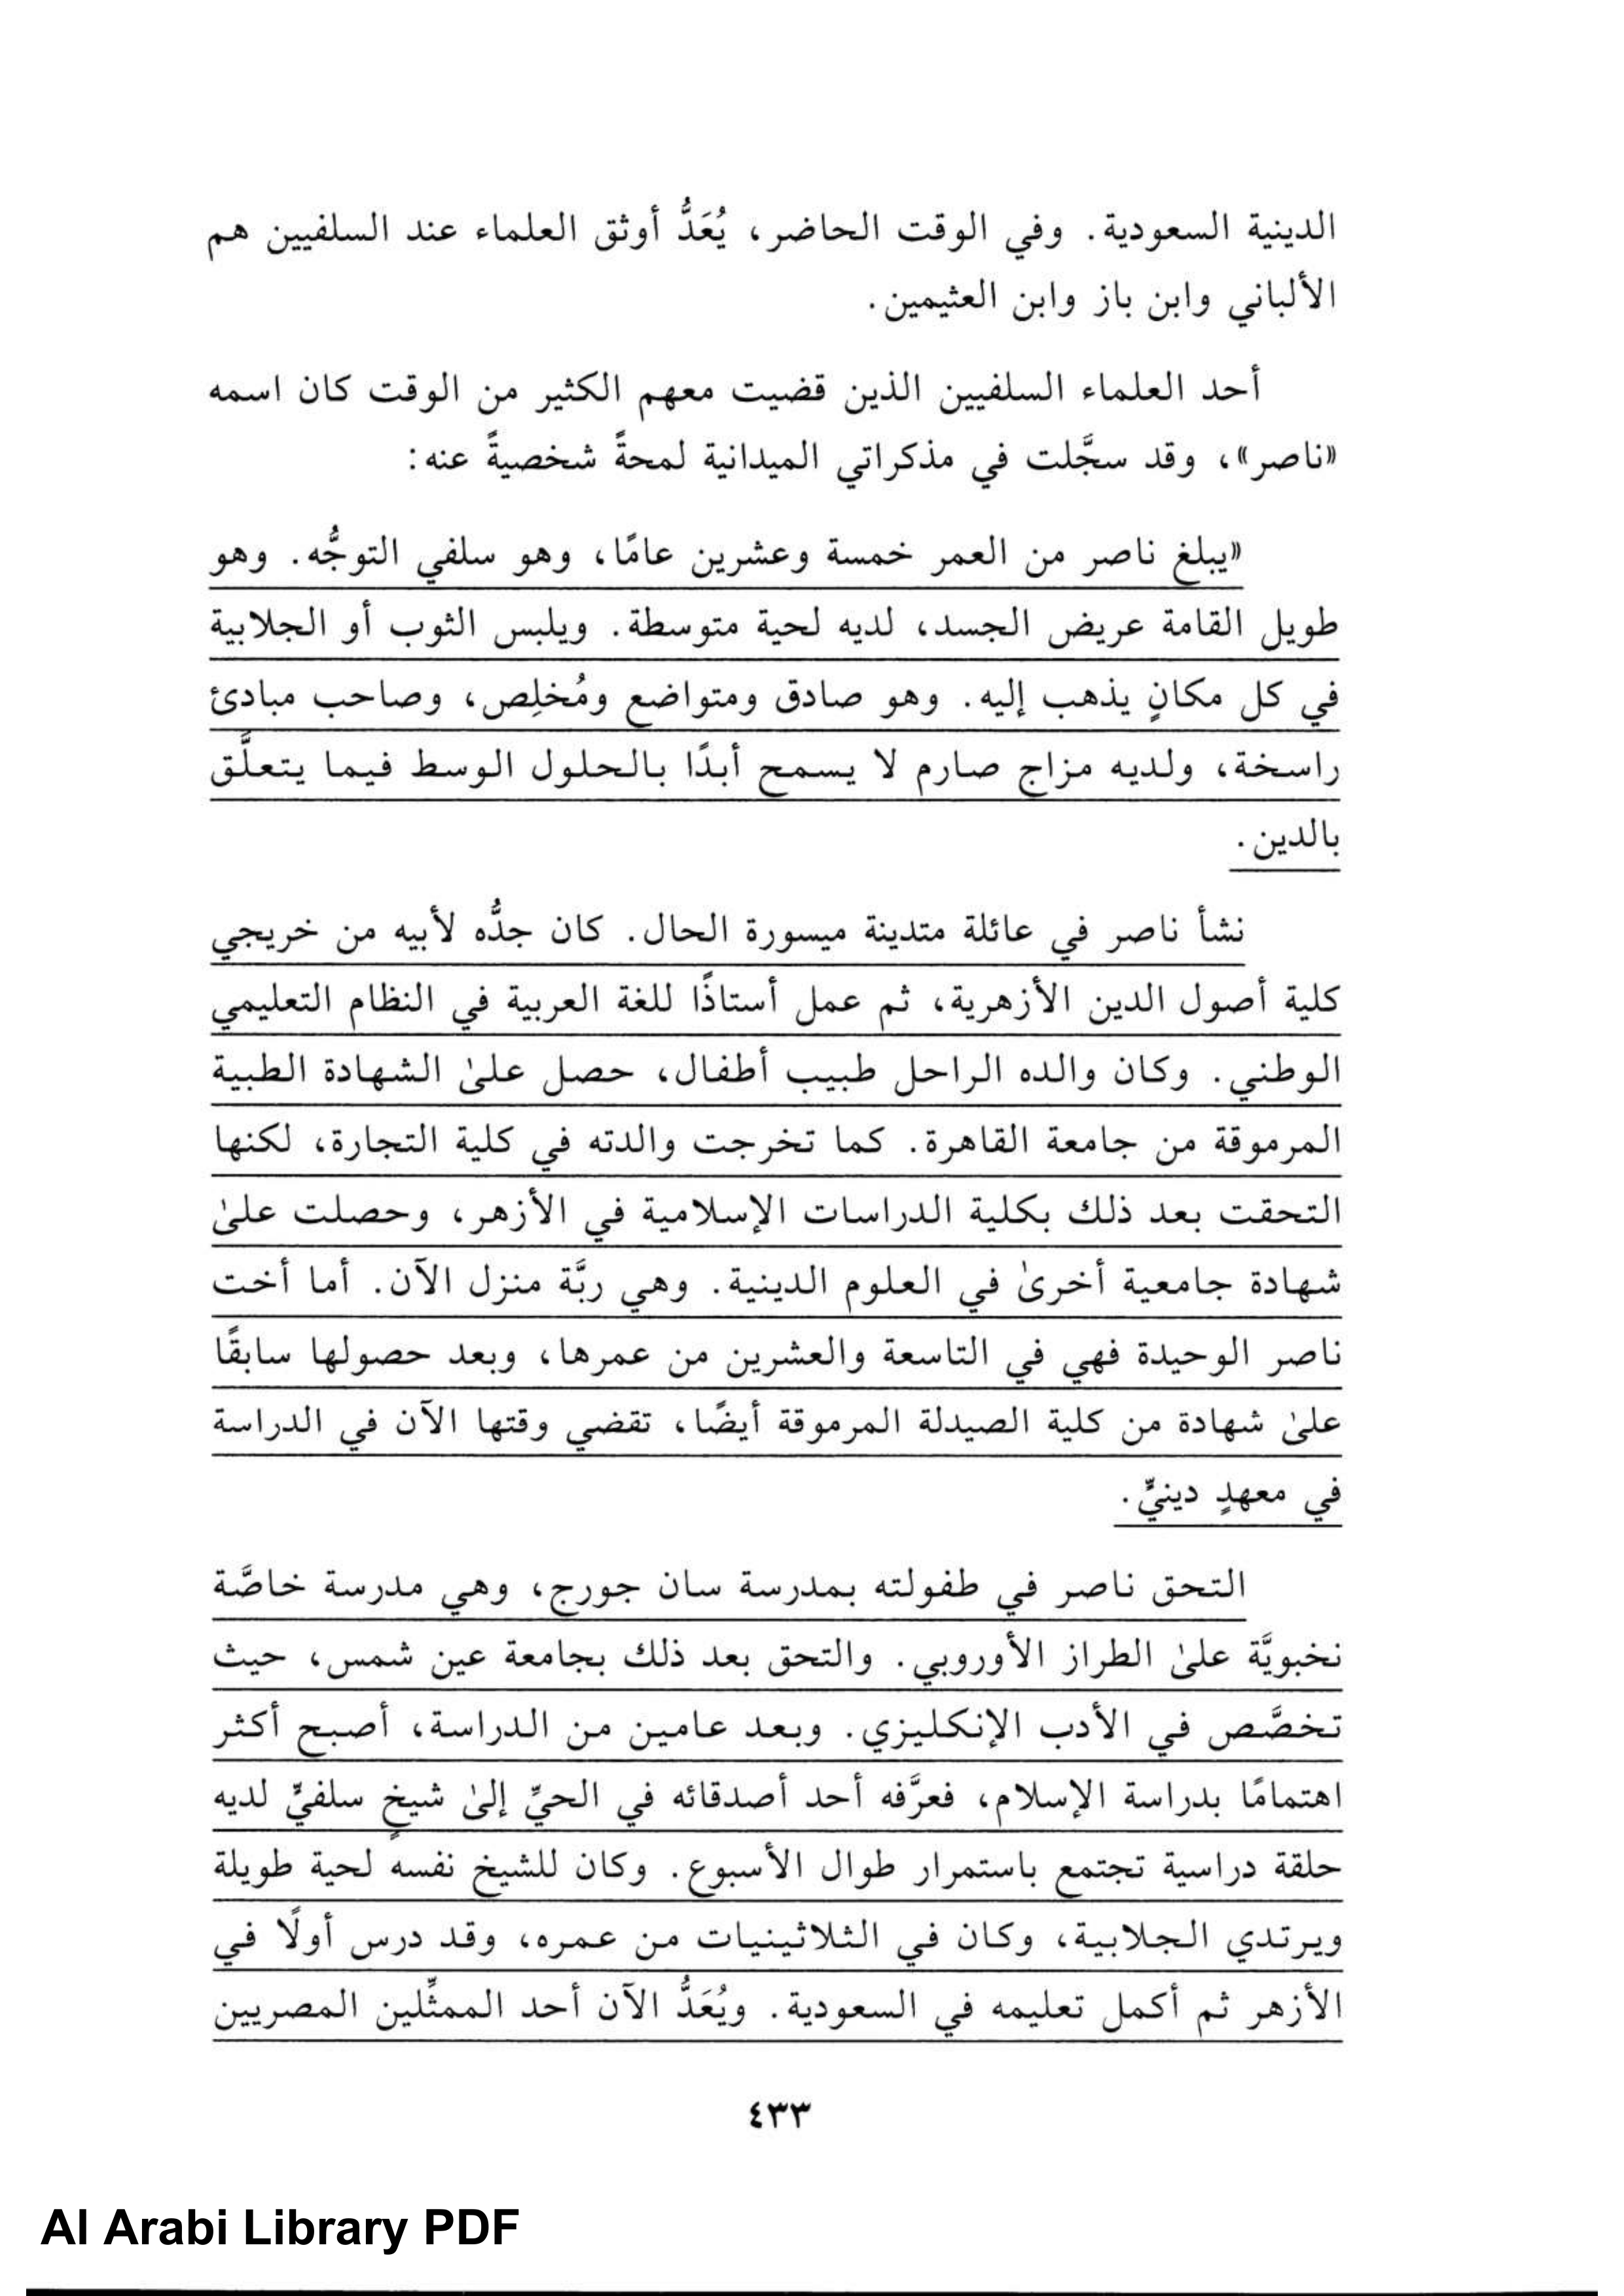 الدينية السعودية. وفي الوقت الحاضر، يُعَدُّ أوثق العلماء عند السلفيين هم
الألباني وابن باز وابن العثيمين.
أحد العلماء السلفيين الذين قضيت معهم الكثير من الوقت كان اسمه
«ناصر»، وقد سجَّلت في مذكراتي الميدانية لمحةً شخصيةً عنه:
«يبلغ ناصر من العمر خمسة وعشرين عامًا، وهو سلفي التوجُّه. وهو
طويل القامة عريض الجسد، لديه لحية متوسطة. ويلبس الثوب أو الجلابية
في كل مكانٍ يذهب إليه. وهو صادق ومتواضع ومُخلِص، وصاحب مبادئ
راسخة، ولديه مزاج صارم لا يسمح أبدًا بالحلول الوسط فيما يتعلَّق
بالدين.
نشأ ناصر في عائلة متدينة ميسورة الحال. كان جدُّه لأبيه من خريجي
كلية أصول الدين الأزهرية، ثم عمل أستاذًا للغة العربية في النظام التعليمي
الوطني. وكان والده الراحل طبيب أطفال، حصل علىٰ الشهادة الطبية
المرموقة من جامعة القاهرة. كما تخرجت والدته في كلية التجارة، لكنها
التحقت بعد ذلك بكلية الدراسات الإسلامية في الأزهر، وحصلت علىٰ
شهادة جامعية أخرىٰ في العلوم الدينية. وهي ربَّة منزل الآن. أما أخت
ناصر الوحيدة فهي في التاسعة والعشرين من عمرها، وبعد حصولها سابقًا
علىٰ شهادة من كلية الصيدلة المرموقة أيضًا، تقضي وقتها الآن في الدراسة
في معهدٍ دينيٍّ.
التحق ناصر في طفولته بمدرسة سان جورج، وهي مدرسة خاصَّة
نخبويَّة علىٰ الطراز الأوروبي. والتحق بعد ذلك بجامعة عين شمس، حيث
تخصَّص في الأدب الإنكليزي. وبعد عامين من الدراسة، أصبح أكثر
اهتمامًا بدراسة الإسلام، فعرَّفه أحد أصدقائه في الحيِّ إلىٰ شيخٍ سلفيٍّ لديه
حلقة دراسية تجتمع باستمرار طوال الأسبوع. وكان للشيخ نفسه لحية طويلة
ويرتدي الجلابية، وكان في الثلاثينيات من عمره، وقد درس أولًا في
الأزهر ثم أكمل تعليمه في السعودية. ويُعَدُّ الآن أحد الممثِّلين المصريين
٤٣٣
Al Arabi Library PDF